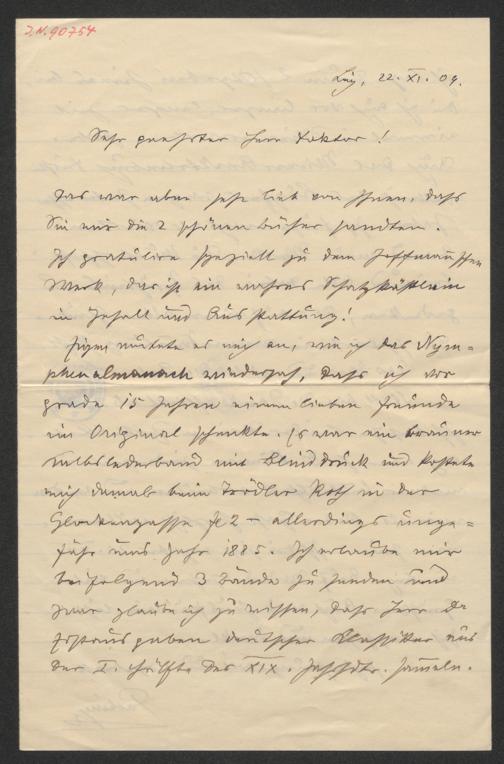 I.N. 90754
Linz, 22. XI. 09.
Sehr geehrter Herr Doktor!
Das war aber sehr lieb von Ihnen, dass
Sie mir die 2 schönen Bücher sandten.
Ich gratulire speziell zu dem Hoffmann'schen
Werk, das ist ein wahres Schatzkästlein
in Gehalt und Ausstattung!
Eigen mutete es mich an, wie ich das Nym=
phenalmanach wiedersah, dass ich vor
grade 15 Jahren einem lieben Freunde
im Original schenkte. Es war ein brauner
Kalbslederband mit Blinddruck und kostete
mich damals beim Trödler Roth in der
Glockengasse fl 2 – allerdings unge=
fähr ums Jahr 1885. Ich erlaube mir
beifolgend 3 Bände zu senden und
zwar glaube ich zu wissen, dass Herr Dr
Erstausgaben deutscher Klassiker aus
der I. Hälfte des XIX. Jahrhdts. sammeln.